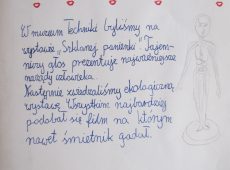 W muzeum Techniki byliśmy na
wystawie „Szklanej panienki". Tajem-
niczy głos prezentuje najważniejsze
narządy człowieka.
Następnie zwiedzaliśmy ekologiczną
wystawę. Wszystkim najbardziej
podobał się film na którym
nawet śmietnik gadał.